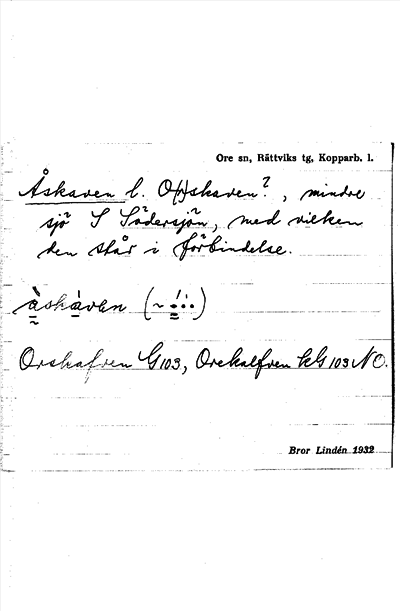 Ore sn, Rättviks tg, Kopparb. l.
Åskaven l. O(r)skaven?, mindre
sjö S Södersjön, med vilken
den står i förbindelse.
àskàven
Orskafven G103, Orekalfven kG 103 NO.
Bror Lindén 1932